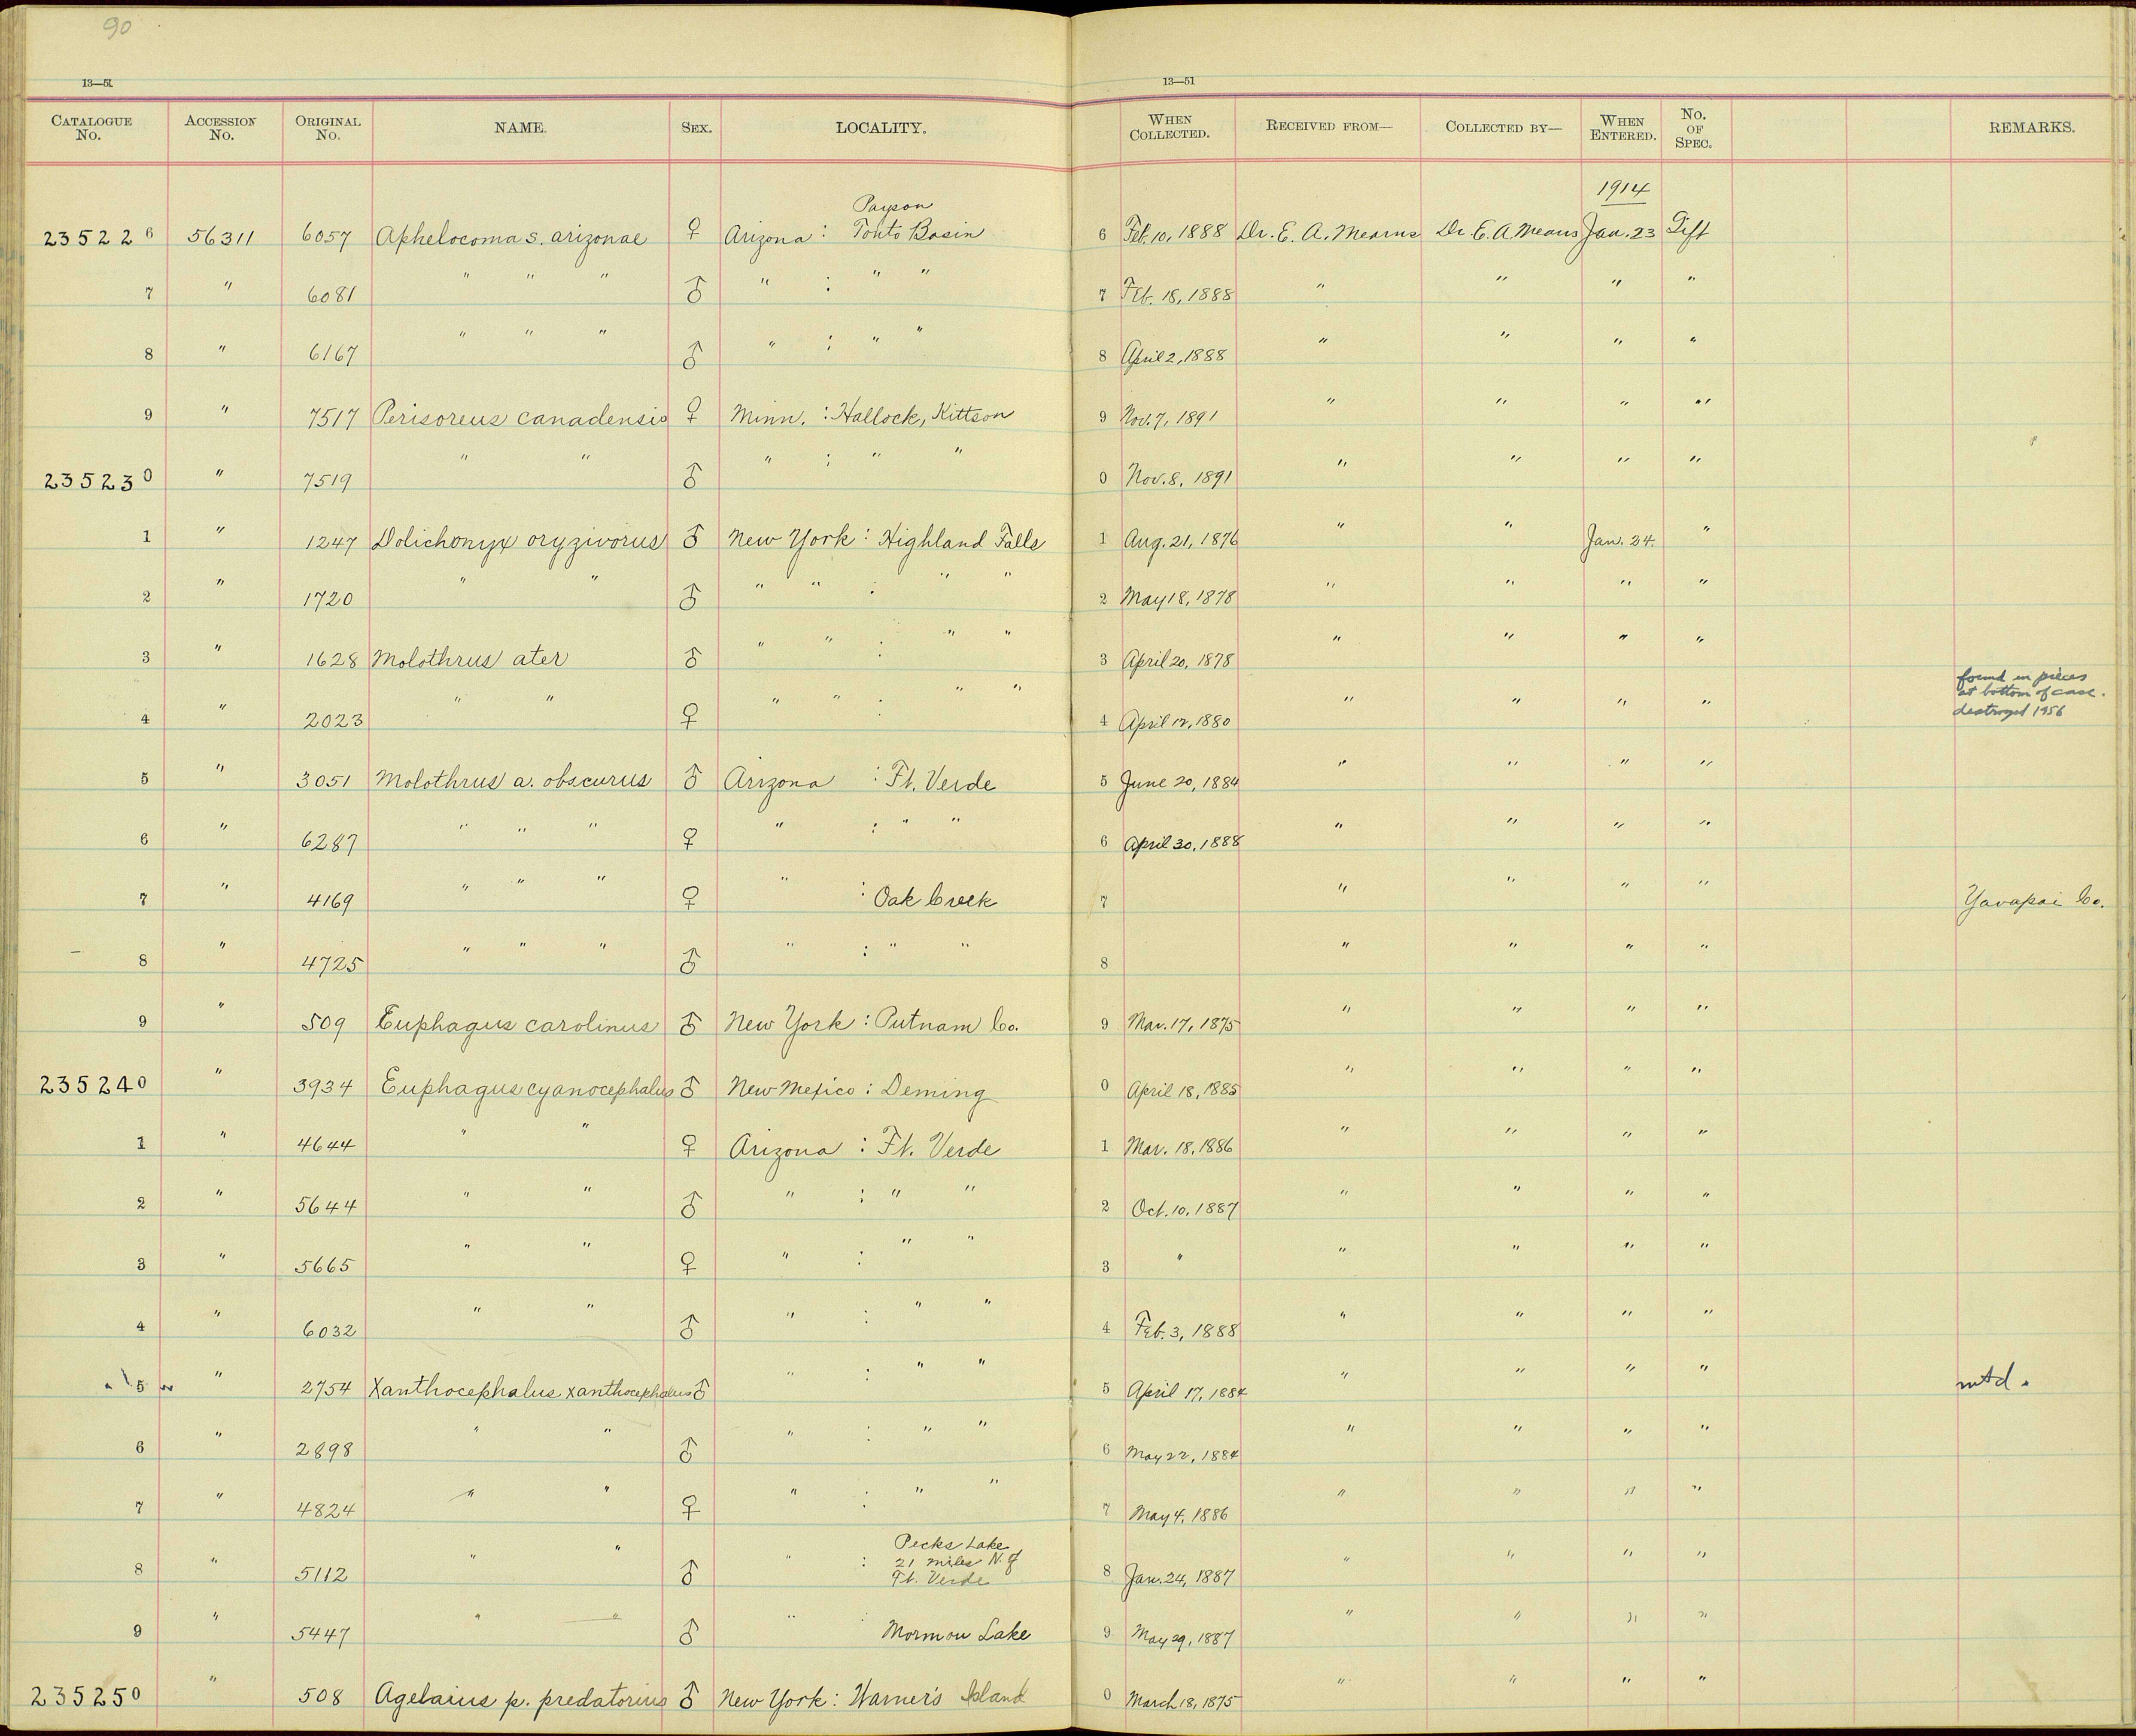 90
13—51
13—51
CATALOGUE No. ACCESSION No. ORIGINAL No. NAME. SEX. LOCALITY. WHEN COLLECTED. RECEIVED FROM— COLLECTED BY— WHEN ENTERED. No. OF SPEC. REMARKS.
1914
Payson
235226 56311 6057 Aphelocoma s. arizonae ♀ Arizona : Tonto Basin 6 Feb. 10, 1888 Dr. E. A. Mearns Dr. E. A. Mearns Jan. 23 Gift
7 " 6081 " " " ♂ " : " " 7 Feb. 18, 1888 " " " "
8 " 6167 " " " ♂ " : " " 8 April 2, 1888 " " " "
9 " 7517 Perisoreus canadensis ♀ Minn. : Hallock, Kittson 9 Nov. 7, 1891 " " " "
235230 " 7519 " " ♂ " : " " 0 Nov. 8, 1891 " " " "
1 " 1247 Dolichonyx oryzivorus ♂ New York : Highland Falls 1 Aug. 21, 1876 " " Jan. 24. "
2 " 1720 " " ♂ " " : " " 2 May 18, 1878 " " " "
3 " 1628 Molothrus ater ♂ " " : " " 3 April 20, 1878 " " " "
4 " 2023 " " ♀ " " : " " 4 April 12, 1880 " " " " found in pieces
at bottom of case.
destroyed 1956
5 " 3051 Molothrus a. obscurus ♂ Arizona : Ft. Verde 5 June 20, 1884 " " " "
6 " 6287 " " " ♀ " : " " 6 April 30, 1888 " " " "
7 " 4169 " " " ♀ " : Oak Creek 7 " " " " Yavapai Co.
8 " 4725 " " " ♂ " : " " 8 " " " "
9 " 509 Euphagus carolinus ♂ New York : Putnam Co. 9 Mar. 17, 1875 " " " "
235240 " 3934 Euphagus cyanocephalus ♂ New Mexico : Deming 0 April 18, 1885 " " " "
1 " 4644 " " ♀ Arizona : Ft. Verde 1 Mar. 18, 1886 " " " "
2 " 5644 " " ♂ " : " " 2 Oct. 10, 1887 " " " "
3 " 5665 " " ♀ " : " " 3 " " " " "
4 " 6032 " " ♂ " : " " 4 Feb. 3, 1888 " " " "
5 " 2754 Xanthocephalus xanthocephalus ♂ " : " " 5 April 17, 1884 " " " " mtd.
6 " 2898 " " ♂ " : " " 6 May 22, 1884 " " " "
7 " 4824 " " ♀ " : " " 7 May 4, 1886 " " " "
8 " 5112 " " ♂ " : Pecks Lake
21 miles N. of
Ft. Verde 8 Jan. 24, 1887 " " " "
9 " 5447 " " ♂ " : Mormon Lake 9 May 29, 1887 " " " "
235250 " 508 Agelaius p. predatorius ♂ New York : Warner's Island 0 March 18, 1875 " " " "